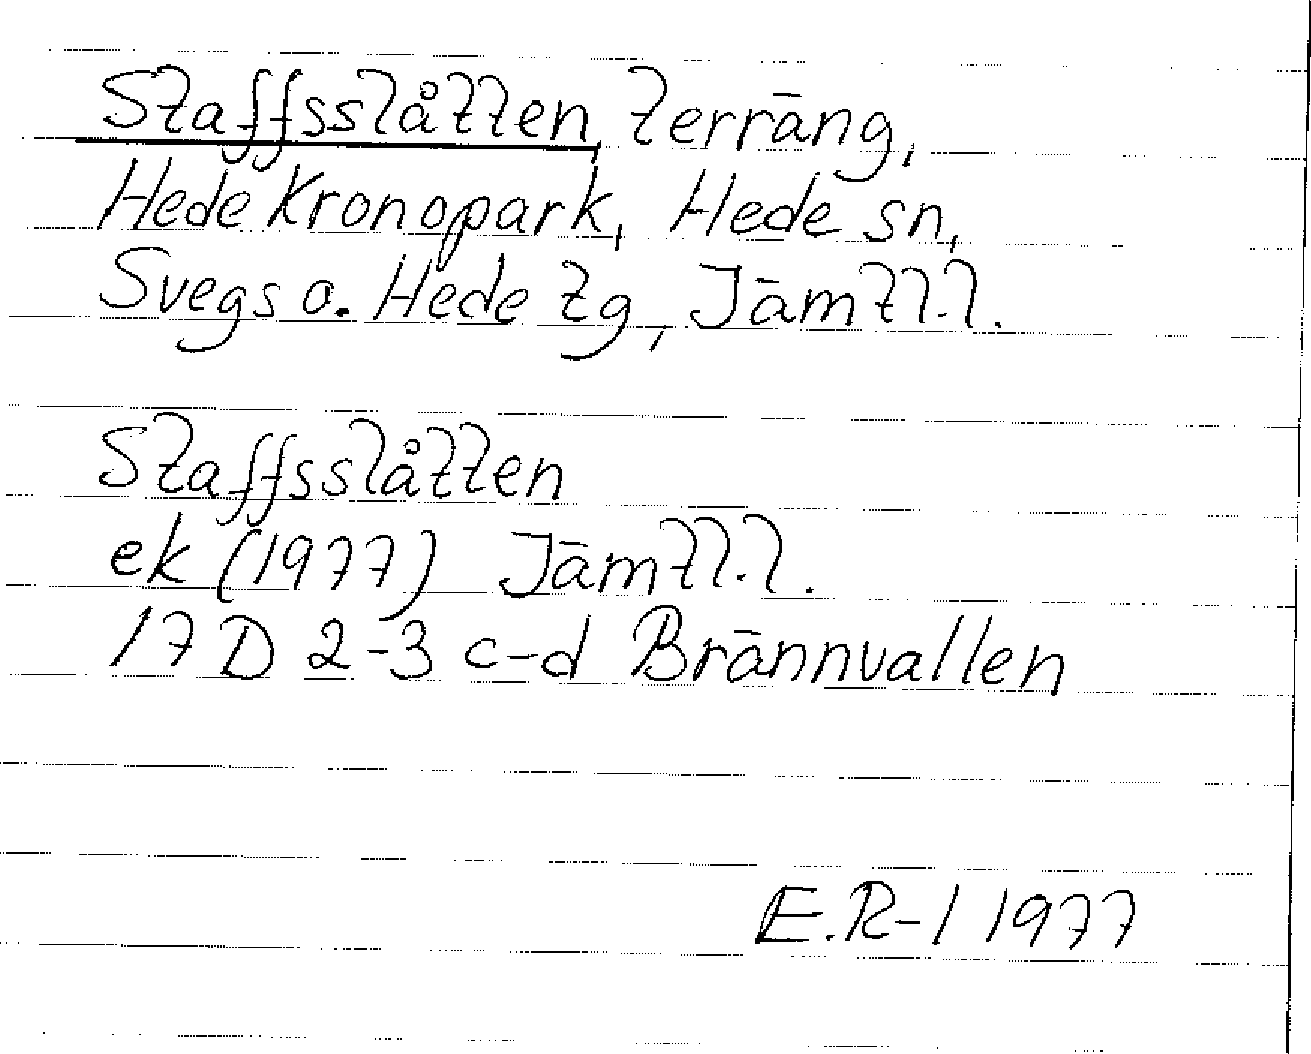 Staffsslåtten, terräng,
Hede Kronopark, Hede sn,
Svegs o. Hede tg, Jämtl.l.
Staffsslåtten
ek (1977) Jämtl.l.
17 D 2-3 c-d Brännvallen
E.R-l 1977